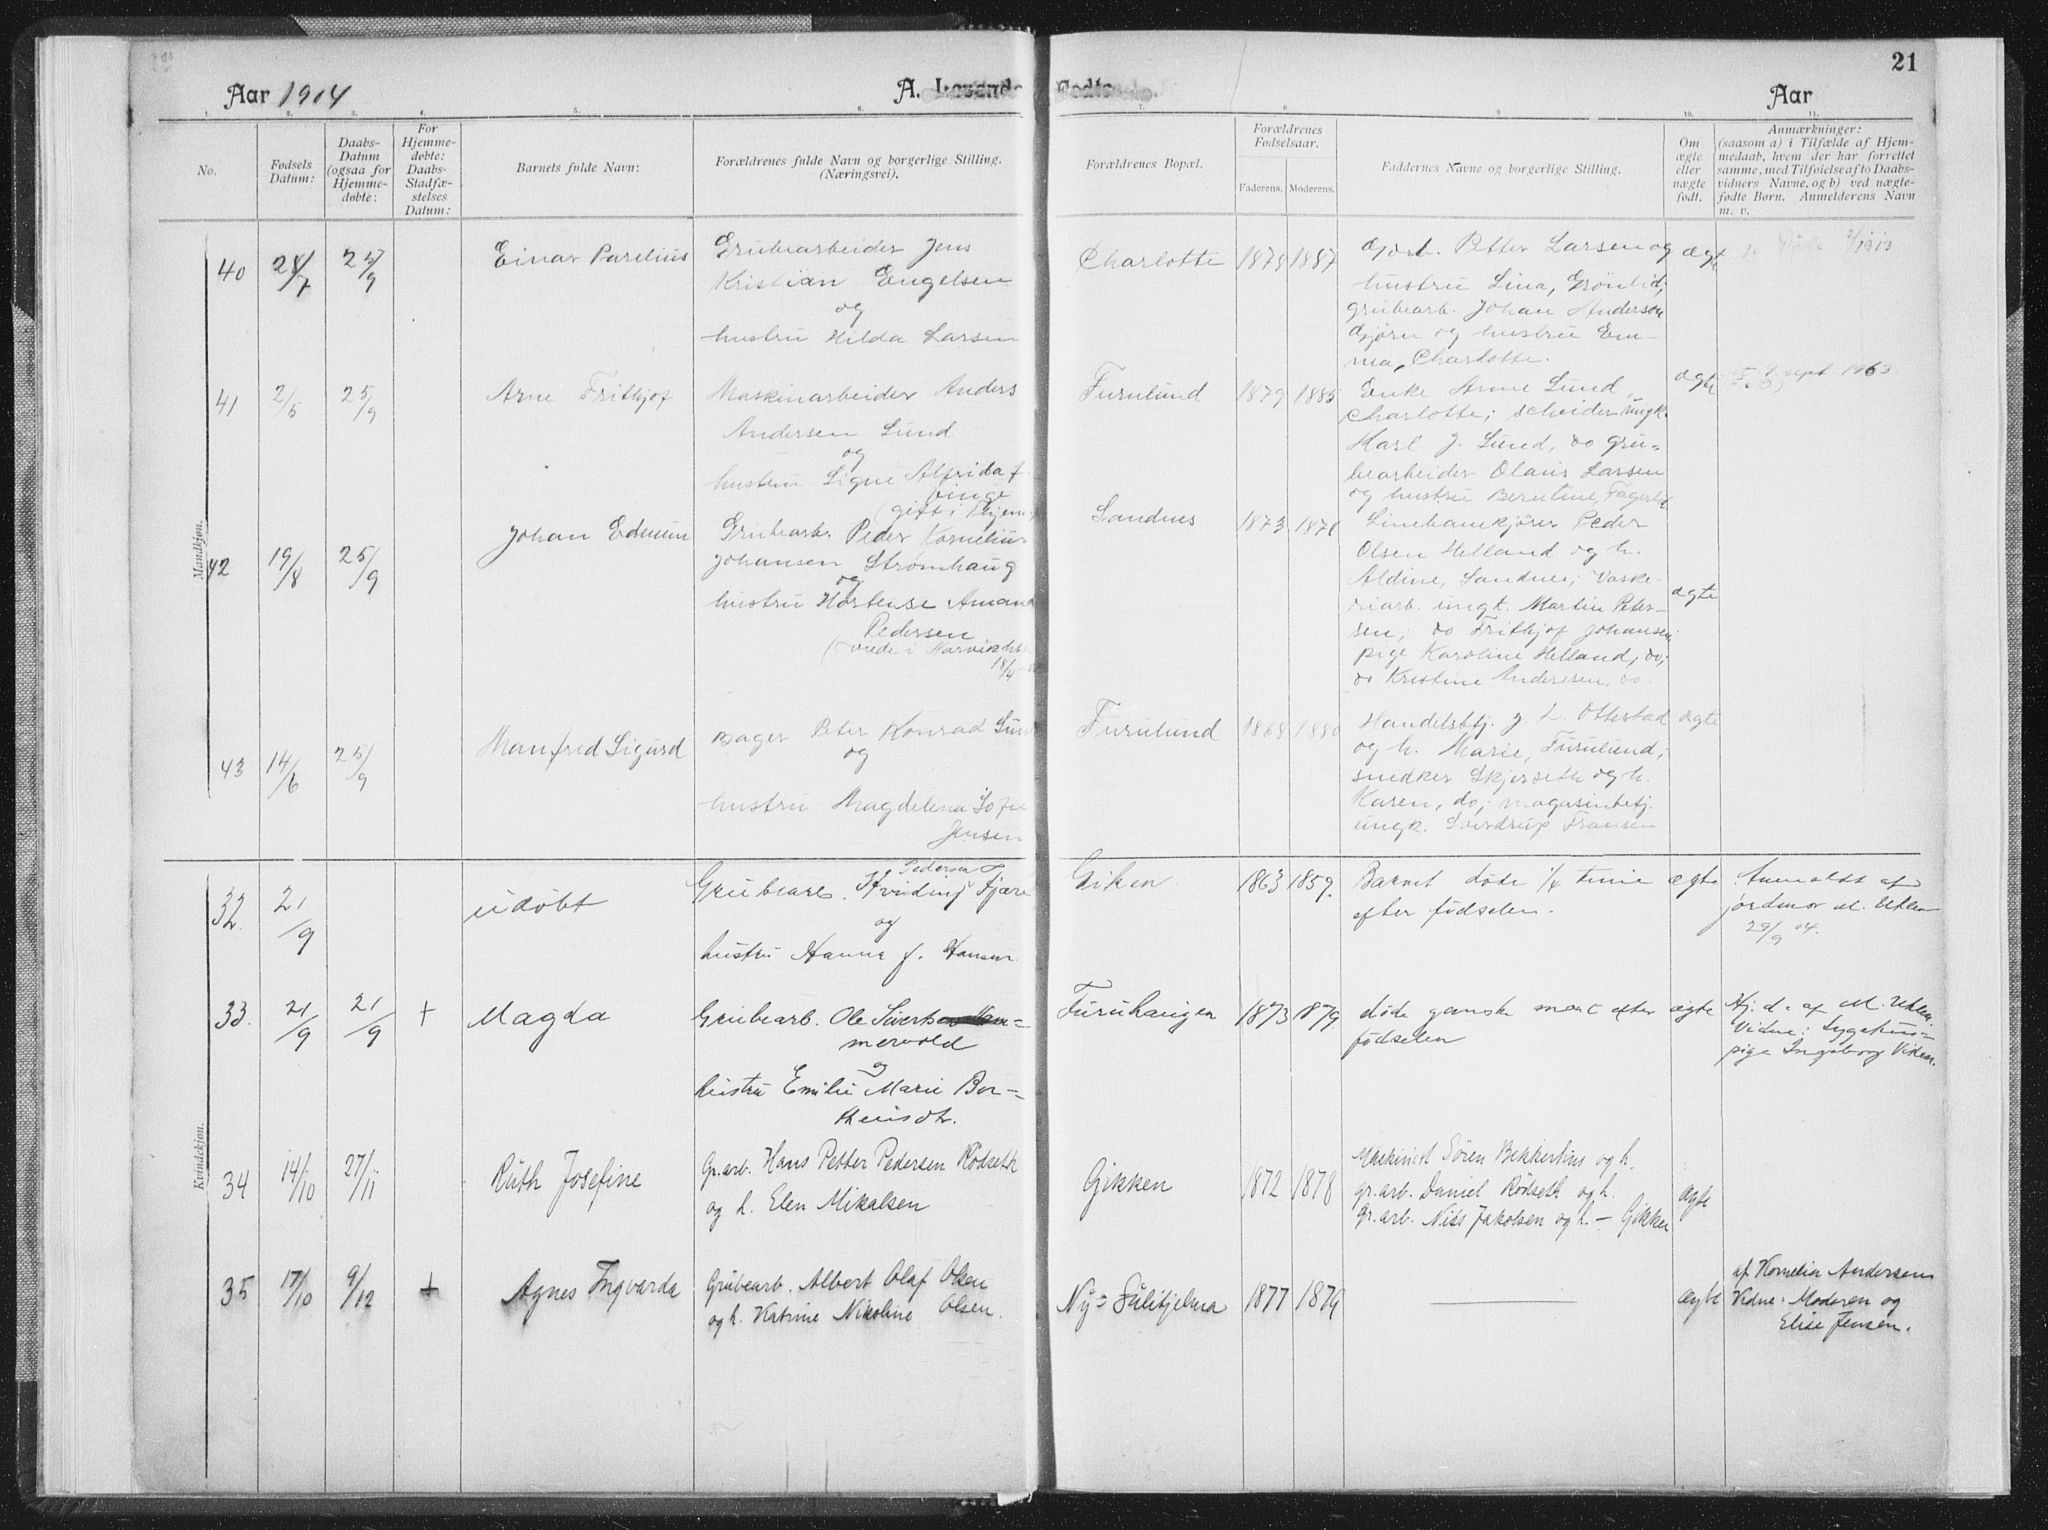 21
Aar 1904
A. Levende Fødte
Aar
1. 2. 3. 4. 5. 6. 7. 8 9 10. 11.
No.
Fødsels Datum:
Daabs-Datum (ogsaa for Hjemmedøbte:
For Hjemmedøbte: Daabs-Stadfæstelses Datum:
Barnets fulde Navn:
Forældrenes fulde Navn og borgerlige Stilling. (Næringsvei).
Forældrenes Bopæl.
Forældrenes Fødselsaar.
Faderens. Moderens.
Faddernes Navne og borgerlige Stilling.
Om ægte eller nægte født.
Anmærkninger:
(saasom a) i Tilfælde af Hjemmedaab, hvem der har forrettet samme, med Tilføielse af to Daabsvidners Navne, og b) ved nægtefødte Børn. Anmelderens Navn m. v.
Mandkjøn.
40 28/7 25/9 Einar Parelius
Grubearbeider Jens
Kristian Engelsen
og
hustru Hilda Larsen
Charlotte 1879 1887
Petter Larsen og
hustru Lina, Grønlid;
grubearb. Johan Anderson
Gjørn og hustru Em-
ma, Charlotte.
ægte
41 2/5 25/9 Arne Frithjof
Maskinarbeider Anders
Andersen Lund
og
hustru Signe Alfrida f.
Furulund 1879 1885
Enke Anne Lund,
Charlotte; scheider ungk.
Karl J. Lund, do gru-
bearbeider Olaus Larsen
og hustru Berntine,
ægte
sept. 1963
42 19/8 25/9 Johan Edmun
Grubearb. Peder Kornelius
Johansen Strømhaug
og
hustru Hortense Aman
Pedersen
(viede i Narvik
18/4
Sandnes 1873
Linebanekjører Peder
Olsen Helland og h.
Aldine, Sandnes; Vaske-
riarb. ungk. Martin Peter-
sen; do Frithjof Johansen;
pige Karoline Helland, do;
do Kristine Andersen, do.
ægte
43 14/6 25/9 Manfred Sigurd
Bager Peter Konrad Lund
og
hustru Magdelena Sofie
Jensen
Furulund 1868 1880
Handelsbtj. J. L. Ottestad
og h. Marie, Furulund;
snedker Skjerseth og h.
Karen, do; magasinbetj.
ungk. Sverdrup Fransen
ægte
Kvindekjøn.
32. 21/9 udøbt
Pedersen
Grubearb. Kvidnig Fjære
og
hustru Hanna f. Hansen.
Giken 1863 1859.
Barnet døde 1/4 time
efter fødselen.
ægte
Anmeldt af
jordmor M. Uklen
29/9 04.
33. 21/9 21/9 + Magda
Grubearb. Ole Sivertsen Ham-
mervold
og
hustru Emilie Marie Bor-
Furuhaugen 1873 1879.
døde ganske snart efter
fødselen
ægte
Hj. d. af M. Uklen.
Vidne: Sygehus-
pige Ingeborg Viken.
34 14/10 27/11 Ruth Josefine
Gr.arb. Hans Petter Pedersen Rødseth
og h. Elen Mikalsen
Gikken 1872 1878
Maskinist Søren Bekkertius og h.
gr.arb. Daniel Rødseth og h.
Gr.arb. Nils Jakobsen og h. – Gikken
ægte
35 17/10 9/12 + Agnes Ingvarda
Grubearb. Albert Olaf Olsen
og h. Katrine Nikoline Olsen.
Ny-Sulitjelma 1877 1879
ægte
af Kornelia Andersen
Vidne: Moderen og
Elise Jensen.